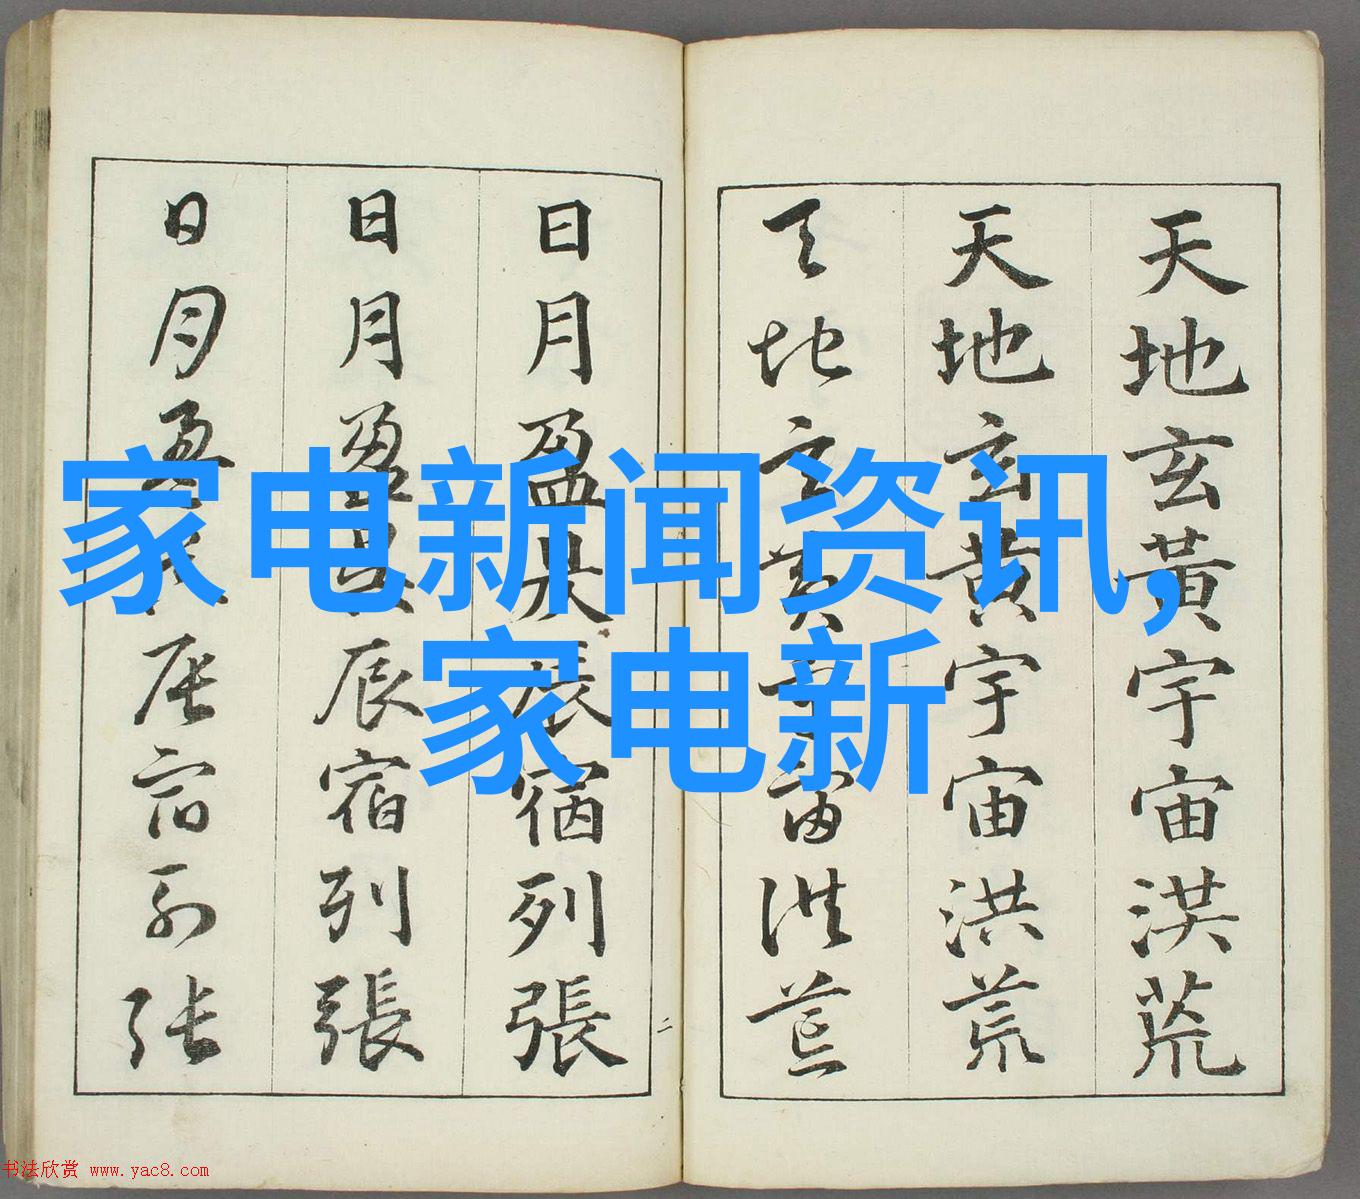 天地玄黃宇宙洪荒
天地玄黄宇宙洪荒
天地玄黄宇宙洪荒
日月盈昃辰宿列張
日月盈昃辰宿列張
日月盈昃辰宿列张
二
家电新闻资讯,
家电新
书法欣赏 www.yac8.com